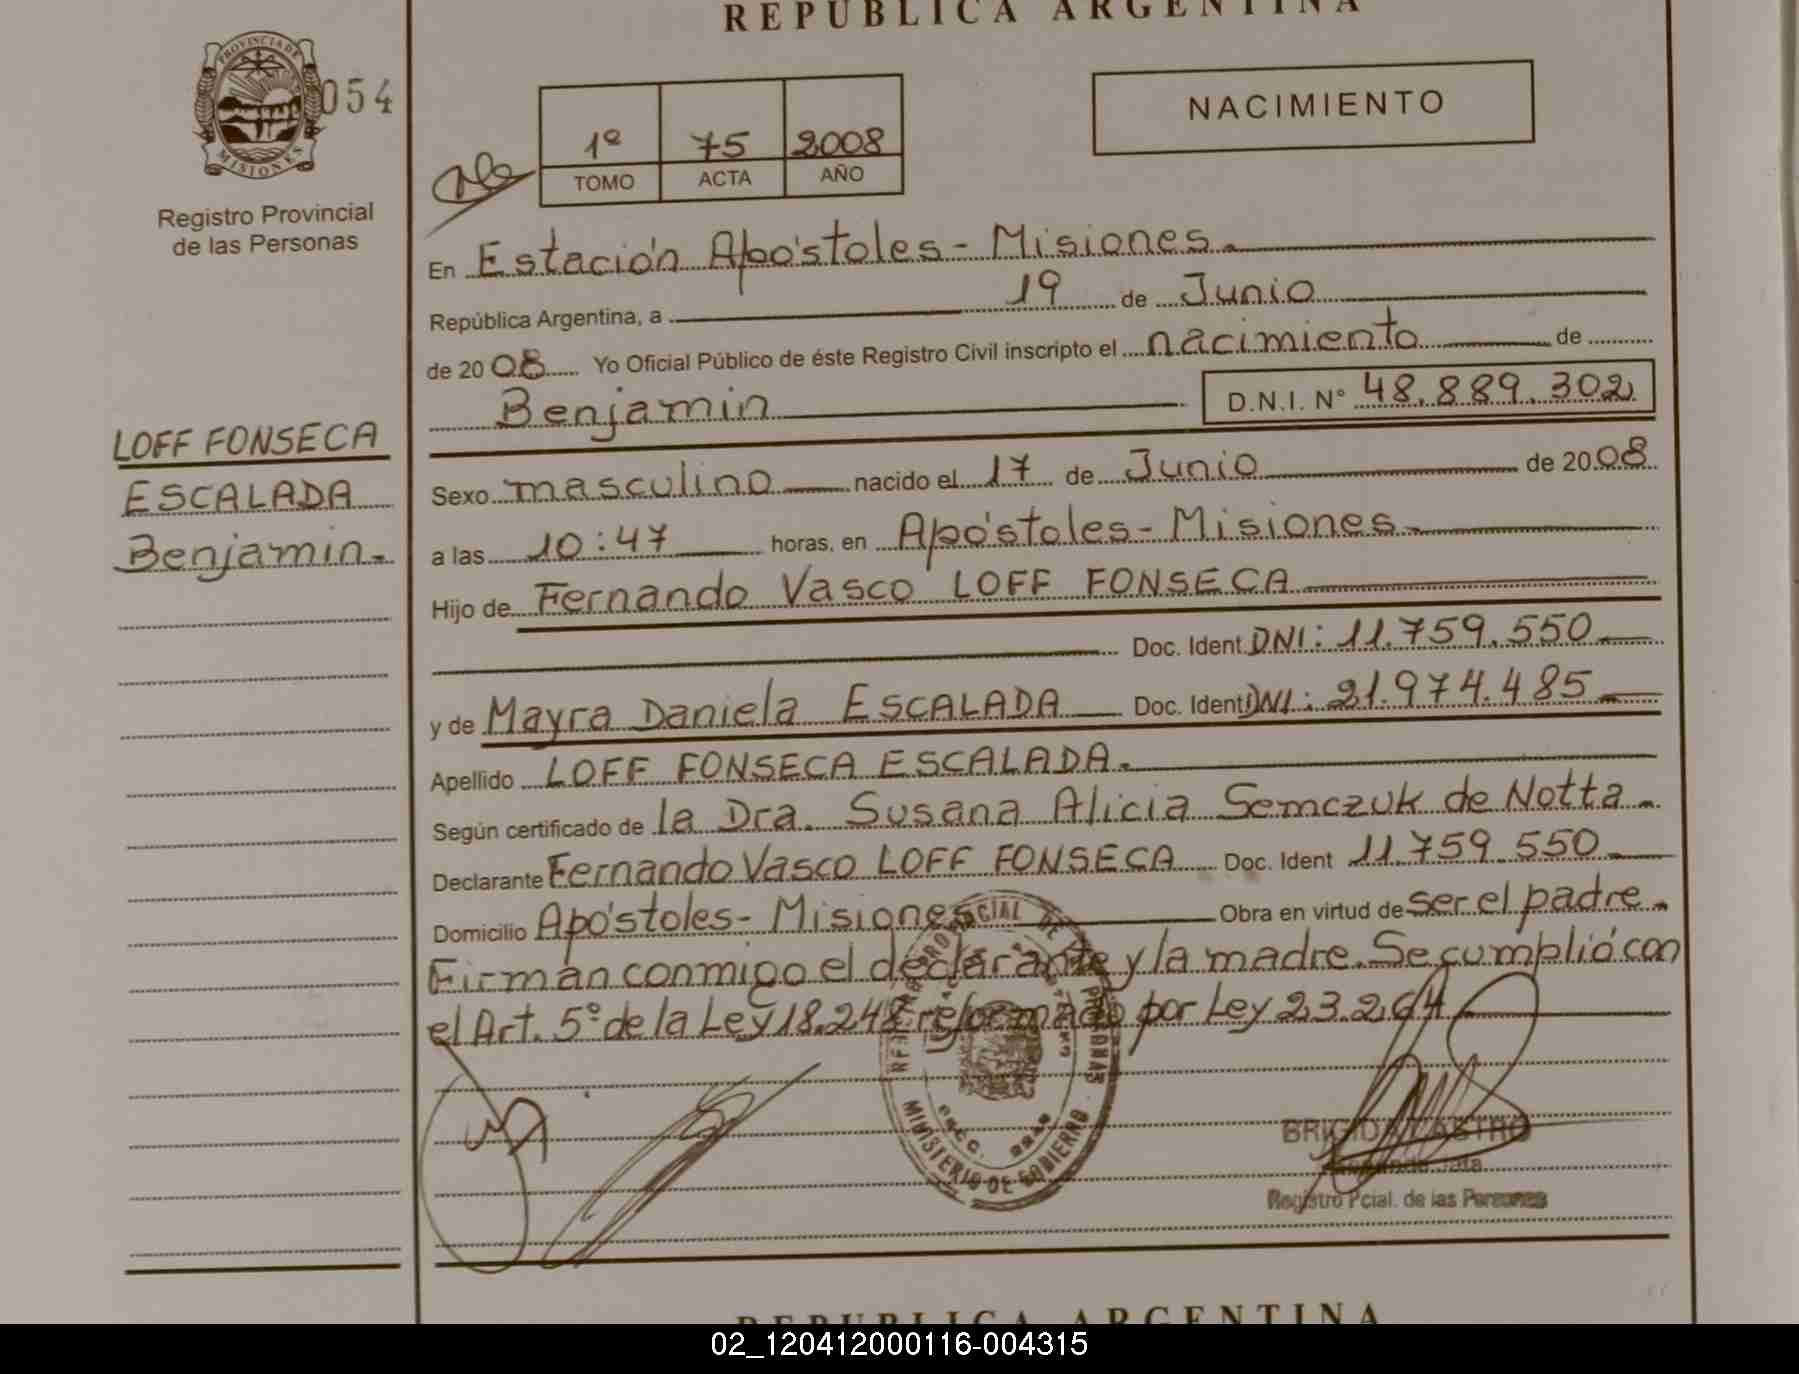 REPUBLICA ARGENTINA
PROVINCIA DE
MISIONES
054
Registro Provincial
de las Personas
1º 75 2008
TOMO ACTA AÑO
NACIMIENTO
En Estación Apóstoles - Misiones.
República Argentina, a 19 de Junio
de 2008 Yo Oficial Público de éste Registro Civil inscripto el nacimiento de
Benjamin D.N.I. N° 48.889.302
Sexo masculino nacido el 17 de Junio de 2008
a las 10:47 horas, en Apóstoles - Misiones.
Hijo de Fernando Vasco LOFF FONSECA
Doc. Ident. DNI: 11.759.550
y de Mayra Daniela ESCALADA Doc. Ident DNI: 21.974.485
Apellido LOFF FONSECA ESCALADA.
Según certificado de la Dra. Susana Alicia Semczuk de Notta.
Declarante Fernando Vasco LOFF FONSECA Doc. Ident 11.759.550
Domicilio Apóstoles - Misiones Obra en virtud de ser el padre.
Firman conmigo el declarante y la madre. Se cumplió con
el Art. 5º de la Ley 18.248 reformado por Ley 23.264
LOFF FONSECA
ESCALADA
Benjamin.
MINISTERIO DE GOBIERNO
BRIGIDA CASTRO
Registro Pcial. de las Personas
REPUBLICA ARGENTINA
02_120412000116-004315